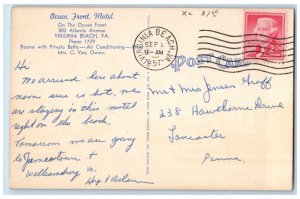 Ocean Front Motel
On The Ocean Front
803 Atlantic Avenue
VIRGINIA BEACH, VA.
Phone 1729
Rooms with Private Baths — Air Conditioning
Mrs. C. Van, Owner.
VIRGINIA BEACH, VA.
SEP 2
9-AM
1957
POST CARD
2¢
Hi
We arrived here about
noon see is out, we
are staying in this motel
right on the beach.
Tomorrow we are going
to Jamestown &
Williamsburg Va.
Hep & Arlene
Mr & Mrs Jensen
238 Hawthorne Drive
Lancaster
Penna